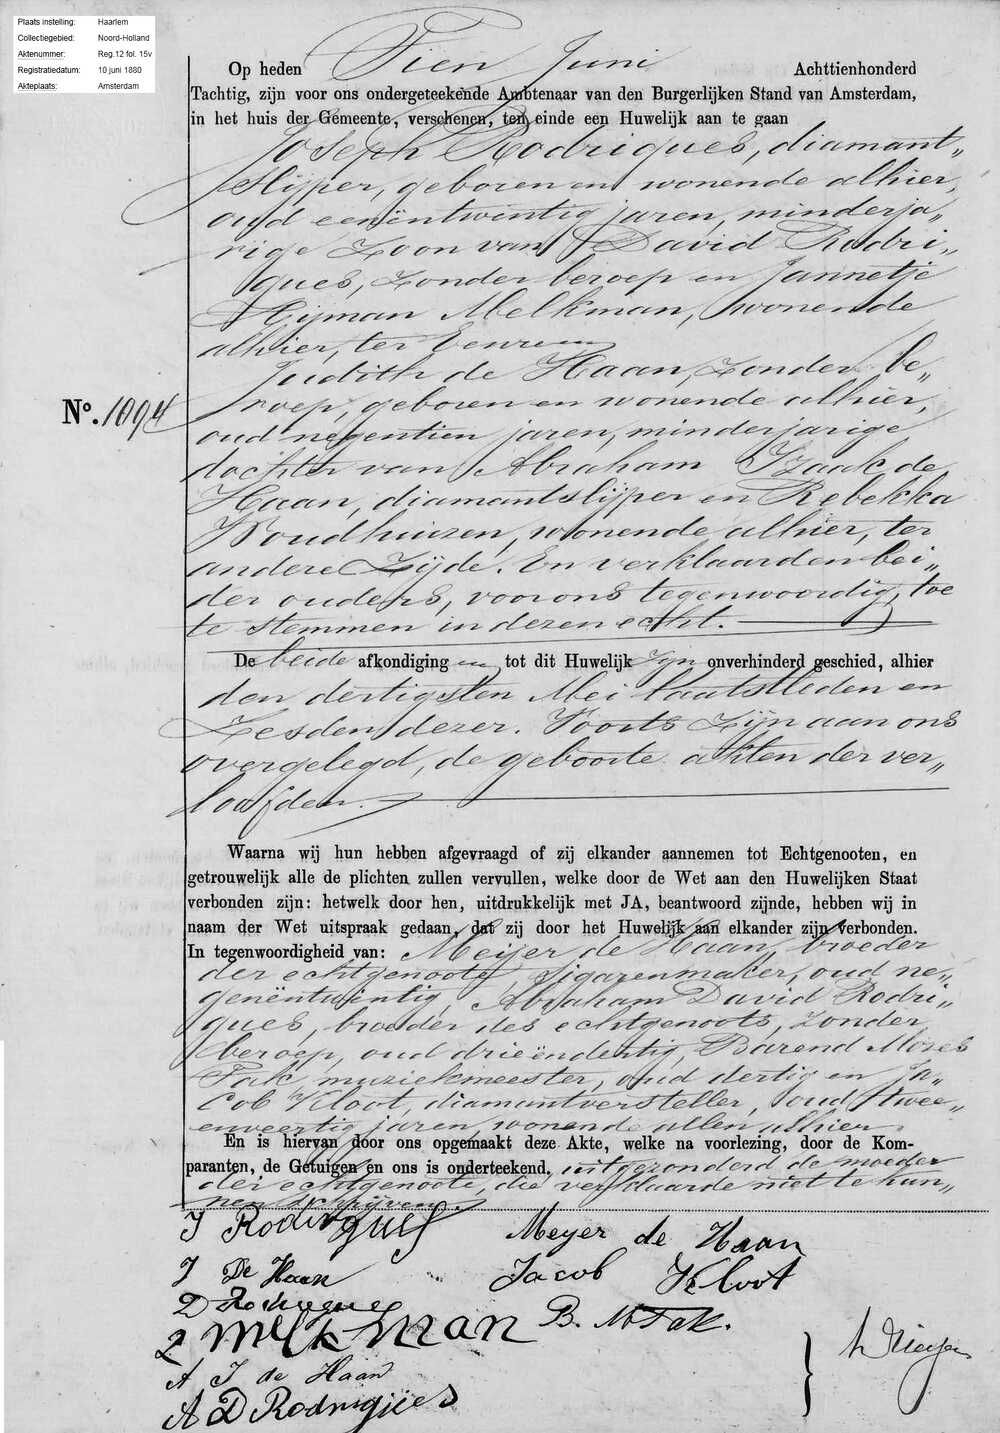 Plaats instelling: Haarlem
Collectiegebied: Noord-Holland
Aktenummer: Reg.12 fol. 15v
Registratiedatum: 10 juni 1880
Akteplaats: Amsterdam
Op heden Tien Juni Achttienhonderd
Tachtig, zijn voor ons ondergeteekende Ambtenaar van den Burgerlijken Stand van Amsterdam,
in het huis der Gemeente, verschenen, ten einde een Huwelijk aan te gaan
Joseph Rodrigues, diamant„
slijper, geboren en wonende alhier,
oud eenëntwintig jaren, minderja„
rige Zoon van David Rodri„
gues, Zonder beroep en Jannetje
Hijman Melkman, wonende
alhier, ter eenre en
Judith de Haan, Zonder be„
roep, geboren en wonende alhier,
oud negentien jaren, minderjarige
dochter van Abraham Izaak de
Haan, diamantslijper en Rebekka
Woudhuizen, wonende alhier, ter
andere Zijde. En verklaarden bei„
der ouders, voor ons tegenwoordig, toe
te stemmen in dezen echt.
No. 1094
De beide afkondiging en tot dit Huwelijk zijn onverhinderd geschied, alhier
den dertigsten Mei laatstleden en
Zesden dezer. Voorts Zijn aan ons
overgelegd, de geboorte akten der ver„
loofden.
Waarna wij hun hebben afgevraagd of zij elkander aannemen tot Echtgenooten, en
getrouwelijk alle de plichten zullen vervullen, welke door de Wet aan den Huwelijken Staat
verbonden zijn: hetwelk door hen, uitdrukkelijk met JA, beantwoord zijnde, hebben wij in
naam der Wet uitspraak gedaan, dat zij door het Huwelijk aan elkander zijn verbonden.
In tegenwoordigheid van: Meijer de Haan, broeder
der echtgenoote, sigarenmaker, oud ne„
genëntwintig, Abraham David Rodri„
gues, broeder des echtgenoots, Zonder
beroep, oud drieëndertig, Barend Mozes
Tak, muziekmeester, oud dertig en Ja„
cob Kloot, diamantversteller, oud twee„
enveertig jaren, wonende allen alhier.
En is hiervan door ons opgemaakt deze Akte, welke na voorlezing, door de Kom-
paranten, de Getuigen en ons is onderteekend, uitgezonderd de moeder
der echtgenoote, die verklaarde niet te kun„
nen schrijven.
J Rodrigues Meyer de Haan
J De Haan Jacob Kloot
D Rodrigues
Melkman B. M Tak.
A J de Haan
A D Rodrigues